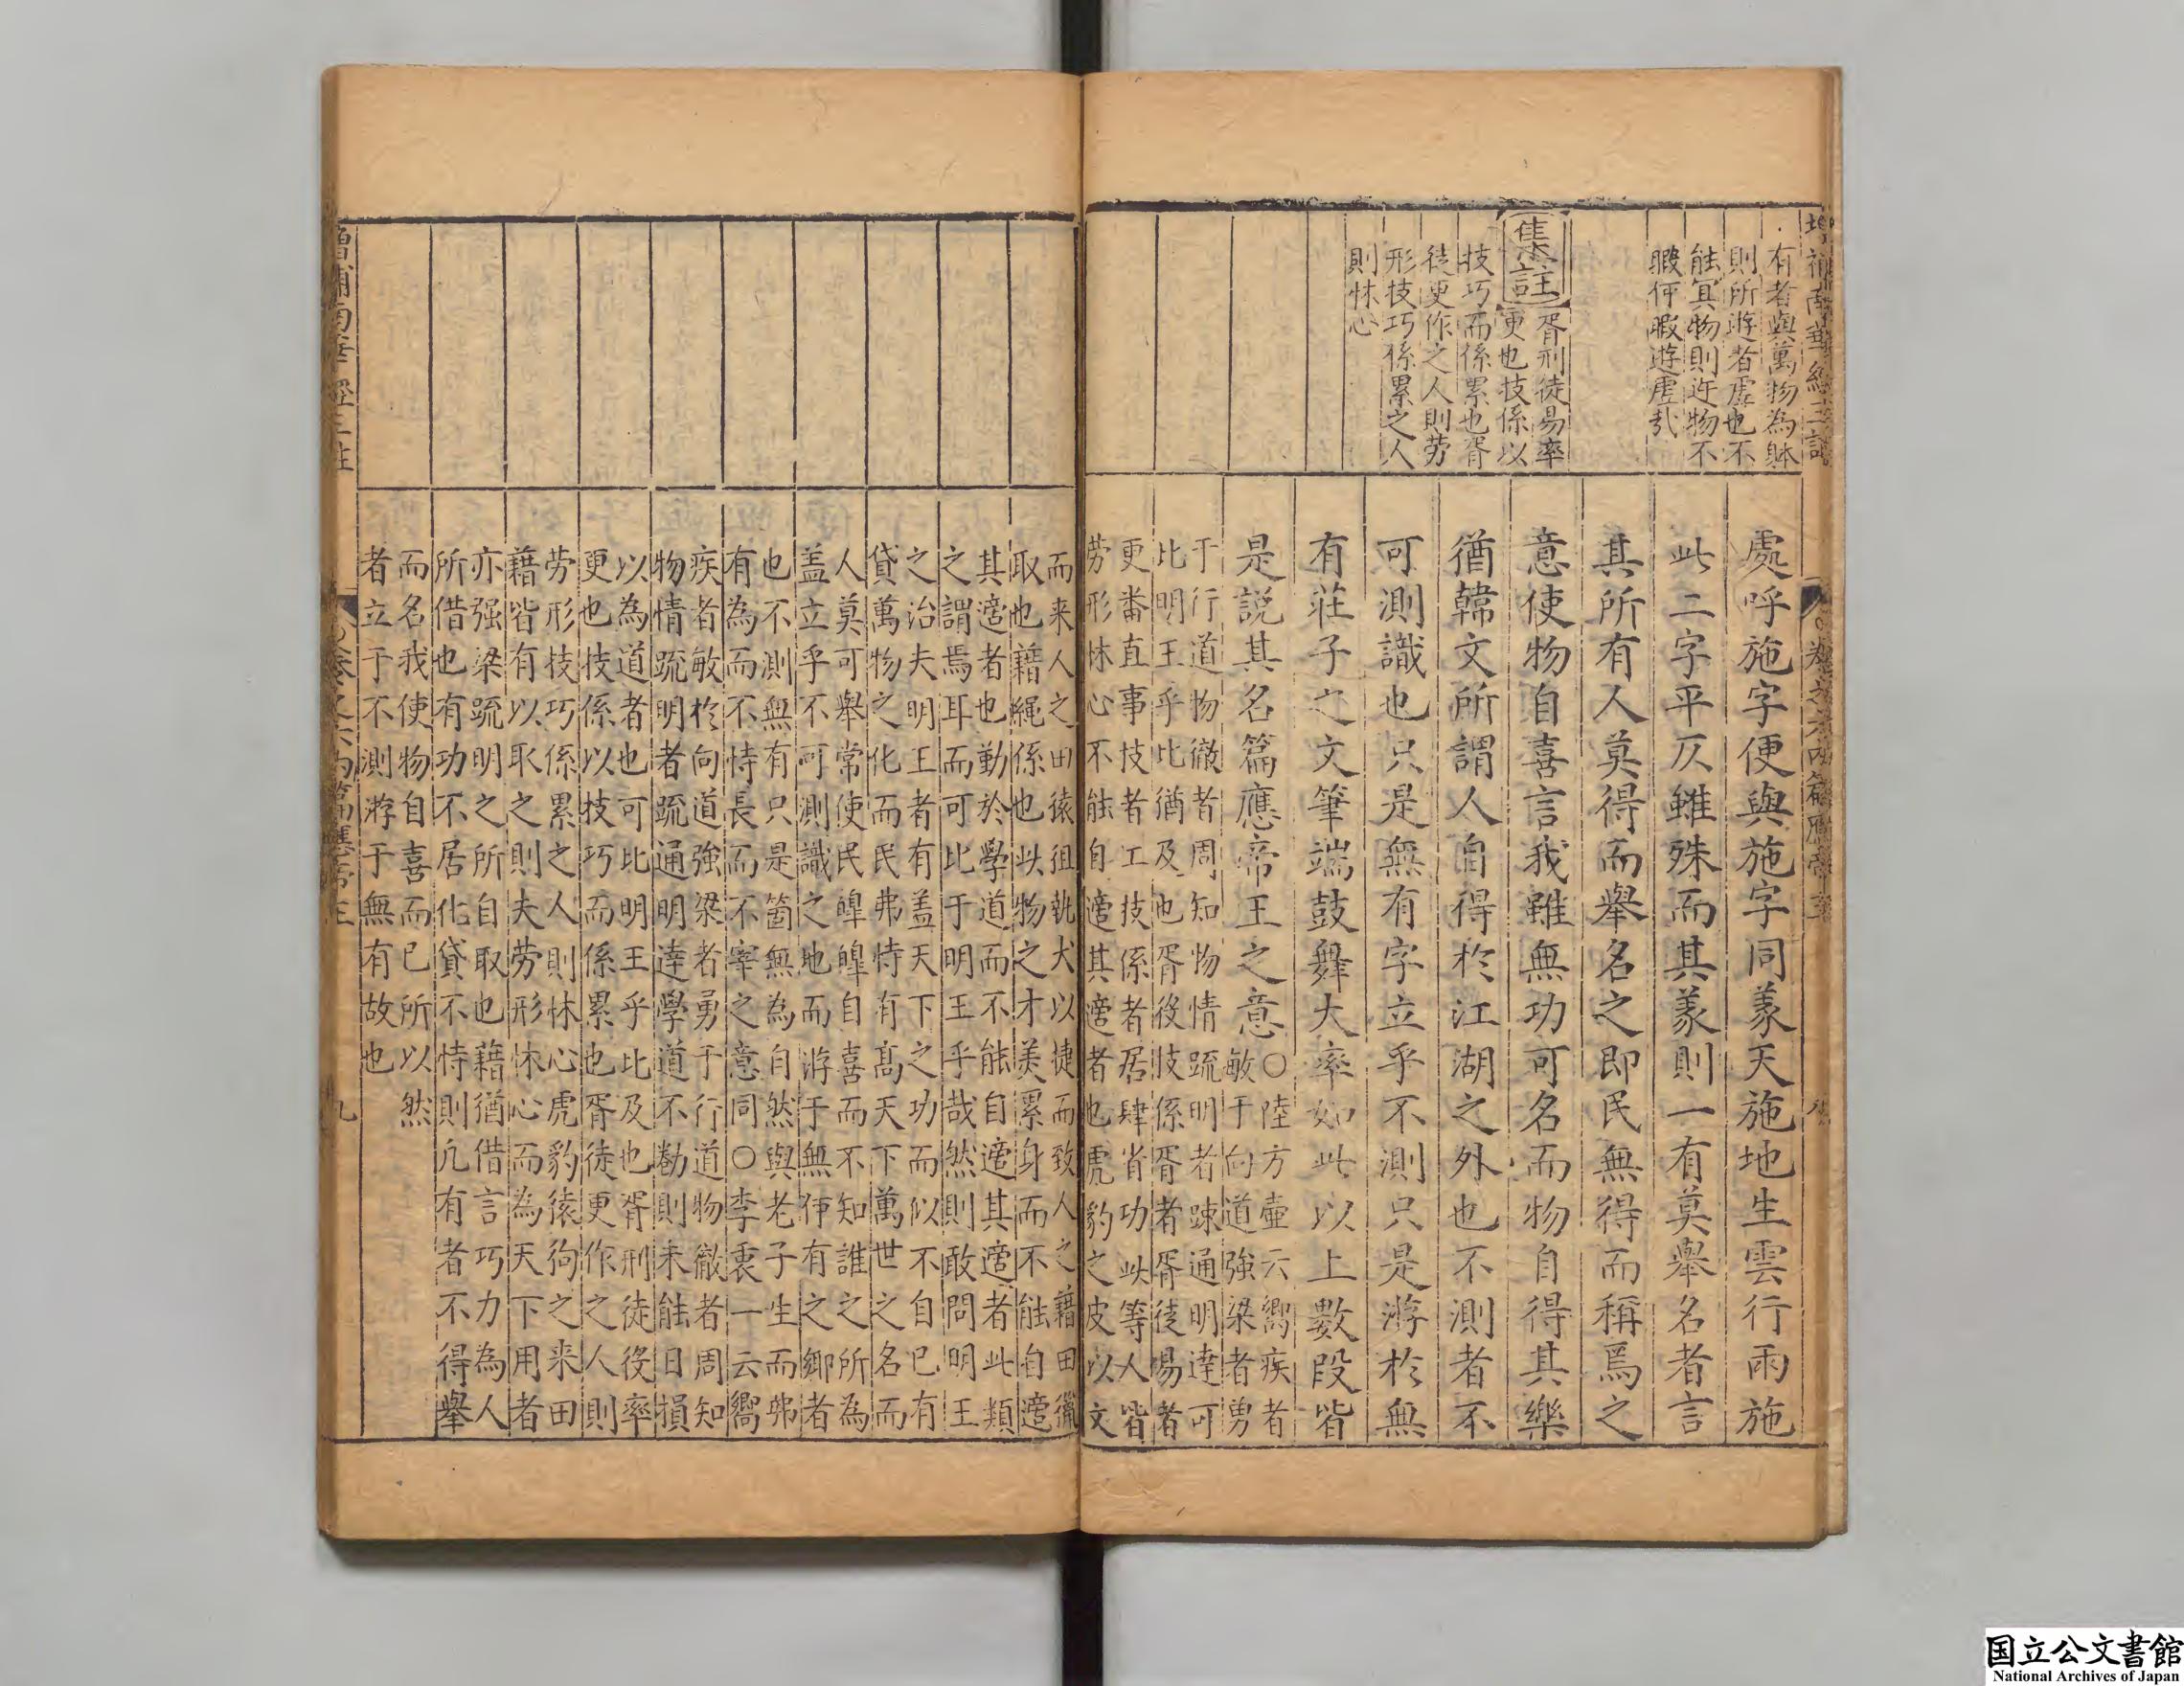 有者與萬物為躰
則所遊者虛也不
能冥物則迕物不
暇何暇遊虛㢤
集註
胥刑徒易率
更也技係以
技巧而係累也胥
徒更作之人則勞
形技巧係累之人
則怵心
處呼施字便與施字同義天施地生雲行雨施
此二字平仄雖殊而其義則一有莫舉名者言
其所有人莫得而舉名之即民無得而稱焉之
意使物自喜言我雖無功可名而物自得其樂
猶韓文所謂人自得於江湖之外也不測者不
可測識也只是無有字立乎不測只是游於無
有莊子之文筆端鼓舞大率如此以上數段皆
是說其名篇應帝王之意
○陸方壺云嚮疾者
敏于向道強梁者勇
于行道物徹者周知物情䟽明者踈通明達可
比明王乎比猶及也胥役技係胥者胥徒易者
更番直事技者工技係者居肆省功此等人皆
勞形怵心不能自適其適者也虎豹之皮以文
而来人之田猿狙執犬以捷而致人之藉田獵
取也藉繩係也此物之才美累身而不能自適
其適者也勤於學道而不能自適其適者此類
之謂焉耳而可比于明王乎哉然則敢問明王
之治夫明王者有蓋天下之功而似不自已有
貸萬物之化而民弗恃有高天下萬世之名而
人莫可舉常使民皡皡自喜而不知誰之所為
蓋立乎不可測識之地而游于無何有之鄉者
也不測無有只是箇無為自然與老子生而弗
有為而不恃長而不宰之意同○李衷一云嚮
疾者敏於向道強梁者勇于行道物徹者周知
物情疏明者疏通明達學道不勌則未能日損
以為道者也可比明王乎比及也胥刑徒役率
更也技係以技巧而係累也胥徒更作之人則
勞形技巧係累之人則怵心虎豹猿狗之来田
藉皆有以取之則夫勞形怵心而為天下用者
亦强梁疏明之所自取也藉猶借言巧力為人
所借也有功不居化貸不恃則凢有者不得舉
而名我使物自喜而已所以然
者立于不測游于無有故也
增補南華經三註
卷之六內篇應帝王
九
国立公文書館
National Archives of Japan